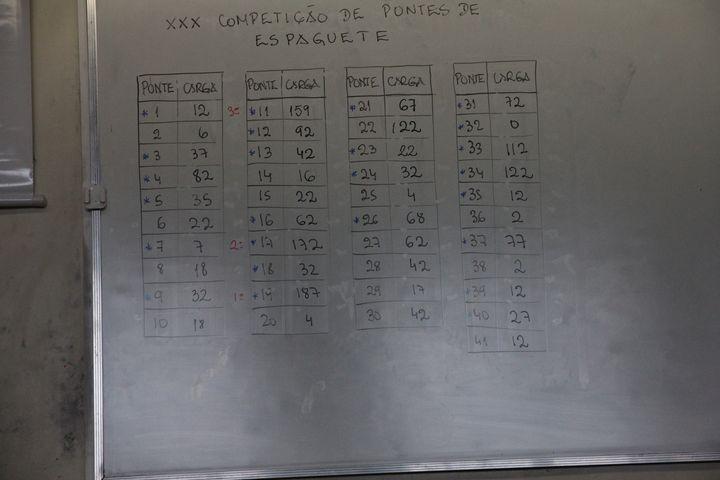 XXX COMPETIÇÃO DE PONTES DE
ESPAGUETE
PONTE CARGA
* 1 12
2 6
* 3 37
* 4 82
* 5 35
6 22
* 7 7
8 18
* 9 32
10 18
PONTE CARGA
3= * 11 159
* 12 92
* 13 42
14 16
15 22
* 16 62
2= * 17 172
* 18 32
1= * 19 187
20 4
PONTE CARGA
* 21 67
22 122
* 23 22
* 24 32
25 4
* 26 68
27 62
28 42
29 17
30 42
PONTE CARGA
* 31 72
* 32 0
* 33 112
* 34 122
* 35 12
36 2
* 37 77
38 2
* 39 12
* 40 27
41 12